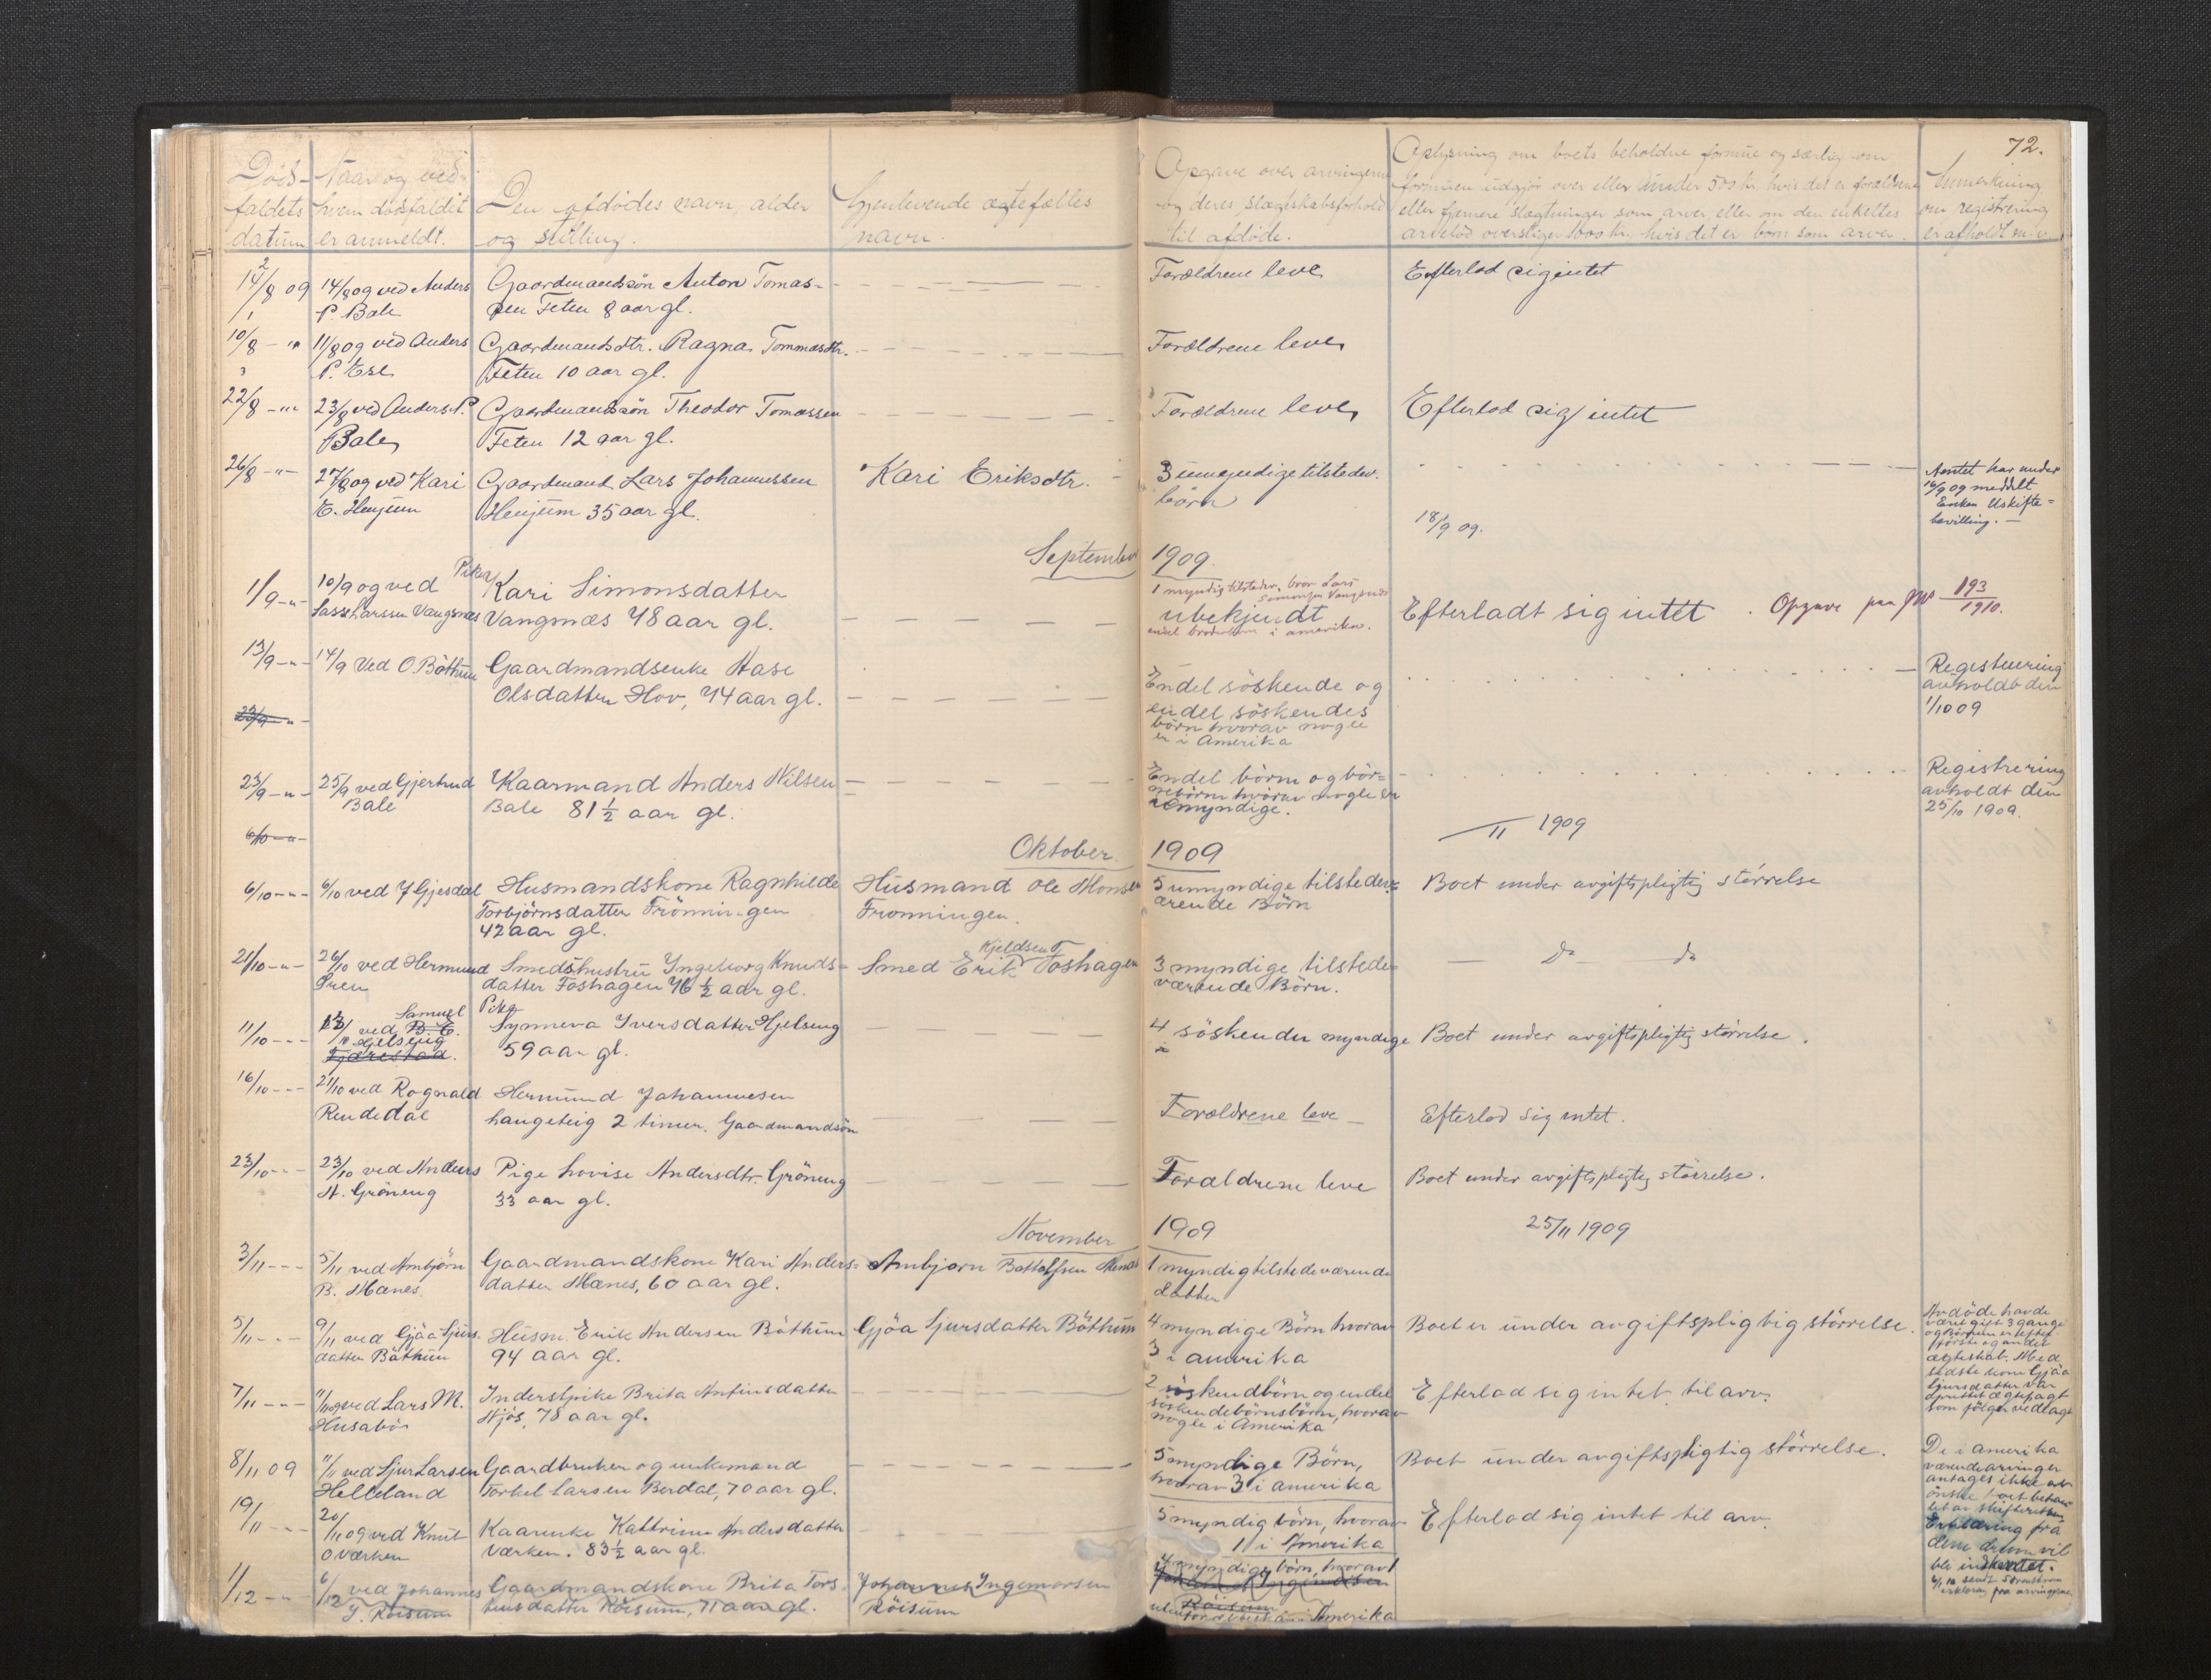 72.
Døds-
faldets
datum
Naar og ved
hvem dødsfaldet
er anmeldt.
Den afdødes navn, alder
og stilling.
Gjenlevende ægtefælles
navn.
Opgave over arvingerne
og deres slægtskabsforhold
til afdøde.
Oplysning om boets beholdne formue og særlig om
formuen udgjør over eller under 500 kr. hvis det er forældrene
eller fjernere slægtninger som arver, eller om den enkeltes
arvelod overstiger 1000 kr. hvis det er børn som arver.
Anmerkning
om registrering
er afholdt m.v.
2
14/8 09
14/8 09 ved Anders
P. Bale
Gaardmandssön Anton Tomas-
sen Feten 8 aar gl.
Forældrene leve
Efterlod sig intet
1
10/8 - "
11/8 09 ved Anders
P. Ese
Gaardmandsdtr. Ragna Tommasdtr.
Feten 10 aar gl.
Forældrene leve
3
22/8 - "
23/8 ved Anders P.
Bale
Gaardmandssön Theodor Tomassen
Feten 12 aar gl.
Forældrene leve
Efterlod sig intet
26/8 - " -
27/8 09 ved Kari
E. Henjum
Gaardmand Lars Johannessen
Henjum 35 aar gl.
Kari Eriksdtr.
3 umyndige tilstedev.
børn
Amtet har under
16/9 09 meddelt
Enken Uskifte-
bevilling. -
18/9 09.
September 1909.
1/9 - " -
10/9 09 ved
Lasse Larssen Vangsnæs
Pike
Kari Simonsdatter
Vangsnæs 48 aar gl.
1 myndig tilstedev. bror Lars
Simonsen Vangsnæs
ubekjendt
endel brorbörn i amerika.
Efterladt sig intet . Opgave paa JNo 193/1910.
13/9 - " -
14/9 Ved O. Böthun
Gaardmandsenke Aase
Olsdatter Hov, 74 aar gl.
Endel söskende og
en del söskendes
börn hvorav nogle
er i Amerika
Registrering
avholdt den
1/10 09
23/9 - " -
23/9 - " -
25/9 ved Gjertrud
Bale
Kaarmand Anders Nilsen
Bale 81 1/2 aar gl.
Endel börn og bör-
nebörn hvorav nogle er
umyndige.
Registrering
avholdt den
25/10 1909.
6/10 - " -
/11 1909
Oktober 1909
6/10 - " -
6/10 ved J Gjesdal
Husmandskone Ragnhilde
Torbjörnsdatter Frönningen
42 aar gl.
Husmand Ole Monsen
Fronningen.
5 umyndige tilstedev-
ærende Börn
Boet under avgiftspligtig störrelse
21/10 - " -
26/10 ved Hermund
Ören
Smedshustru Ingeborg Knuds-
datter Foshagen 76 1/2 aar gl.
Kjeldsen
Smed Erik Foshagen
3 myndige tilstede-
værende Börn.
- Do - Do
11/10 - - -
12/10 ved B. E. Samuel
Hjelseng
Fjærestad.
Pike
Synneva Iversdatter Hjelseng
59 aar gl.
4 söskender myndige
Boet under avgiftspligtig störrelse.
16/10 - - -
21/10 ved Rognald
Rendedal
Hermund Johannesen
haugeteig 2 timer. Gaardmandsön
Forældrene leve -
Efterlod sig intet.
23/10 - - -
23/10 ved Anders
A. Gröneng
Pige Lovise Andersdtr. Gröneng
33 aar gl.
Forældrene leve
Boet under avgiftspligtig störrelse.
November 1909
25/11 1909
3/11 - - -
5/11 ved Ambjörn
B. Mænes
Gaardmandskone Kari Anders-
datter Mænes, 60 aar gl.
Ambjørn Bottolfsen Menes
1 myndig tilstedeværende
datter
5/11 - - -
9/11 ved Gjöa Sjurs-
datter Böthun
Husm. Erik Andersen Böthun
94 aar gl.
Gjöa Sjursdatter Böthun
4 myndige Börn hvorav
3 i amerika
Boet er under avgiftspligtig störrelse.
Avdöde havde
været gift 3 gange
og Börnene er efter
förste og andet
ægteskab. Med
sidste kone Gjöa
Sjursdatter var
oprettet ægtepagt
som fölger vedlagt
7/11 - - -
11/11 09 ved Lars M.
Husabö
Inderstpike Brita Anfinsdatter
Njös, 78 aar gl.
2 söskendbörn og endel
söskendebörnsbörn, hvorav
nogle i Amerika
Efterlod sig intet til arv.
8/11 09
11/11 ved Sjur Larsen
Helleland
Gaardbruker og enkemand
Torkel Larsen Berdal, 70 aar gl.
5 myndige Börn,
hvorav 3 i amerika
Boet under avgiftspligtig störrelse.
De i amerika
værende arvinger
antages ikke at
önske boet behand-
let av skifteretten
Erklæring fra
dem derom vil
bli indhentet.
19/11 - - -
20/11 09 ved Knut
O Værken
Kaarenke Kattrine Andersdatter
Værken. 83 1/2 aar gl.
5 myndig börn, hvorav
1 i Amerika
Efterlod sig intet til arv.
1/12 - " -
6/12 ved Johannes
I. Röisum
Gaardmandskone Brita Tors-
teinsdatter Röisum, 71 aar gl.
Johannes Ingemorsen
Röisum
4 myndige börn, hvorav 1
Röisum
i Amerika